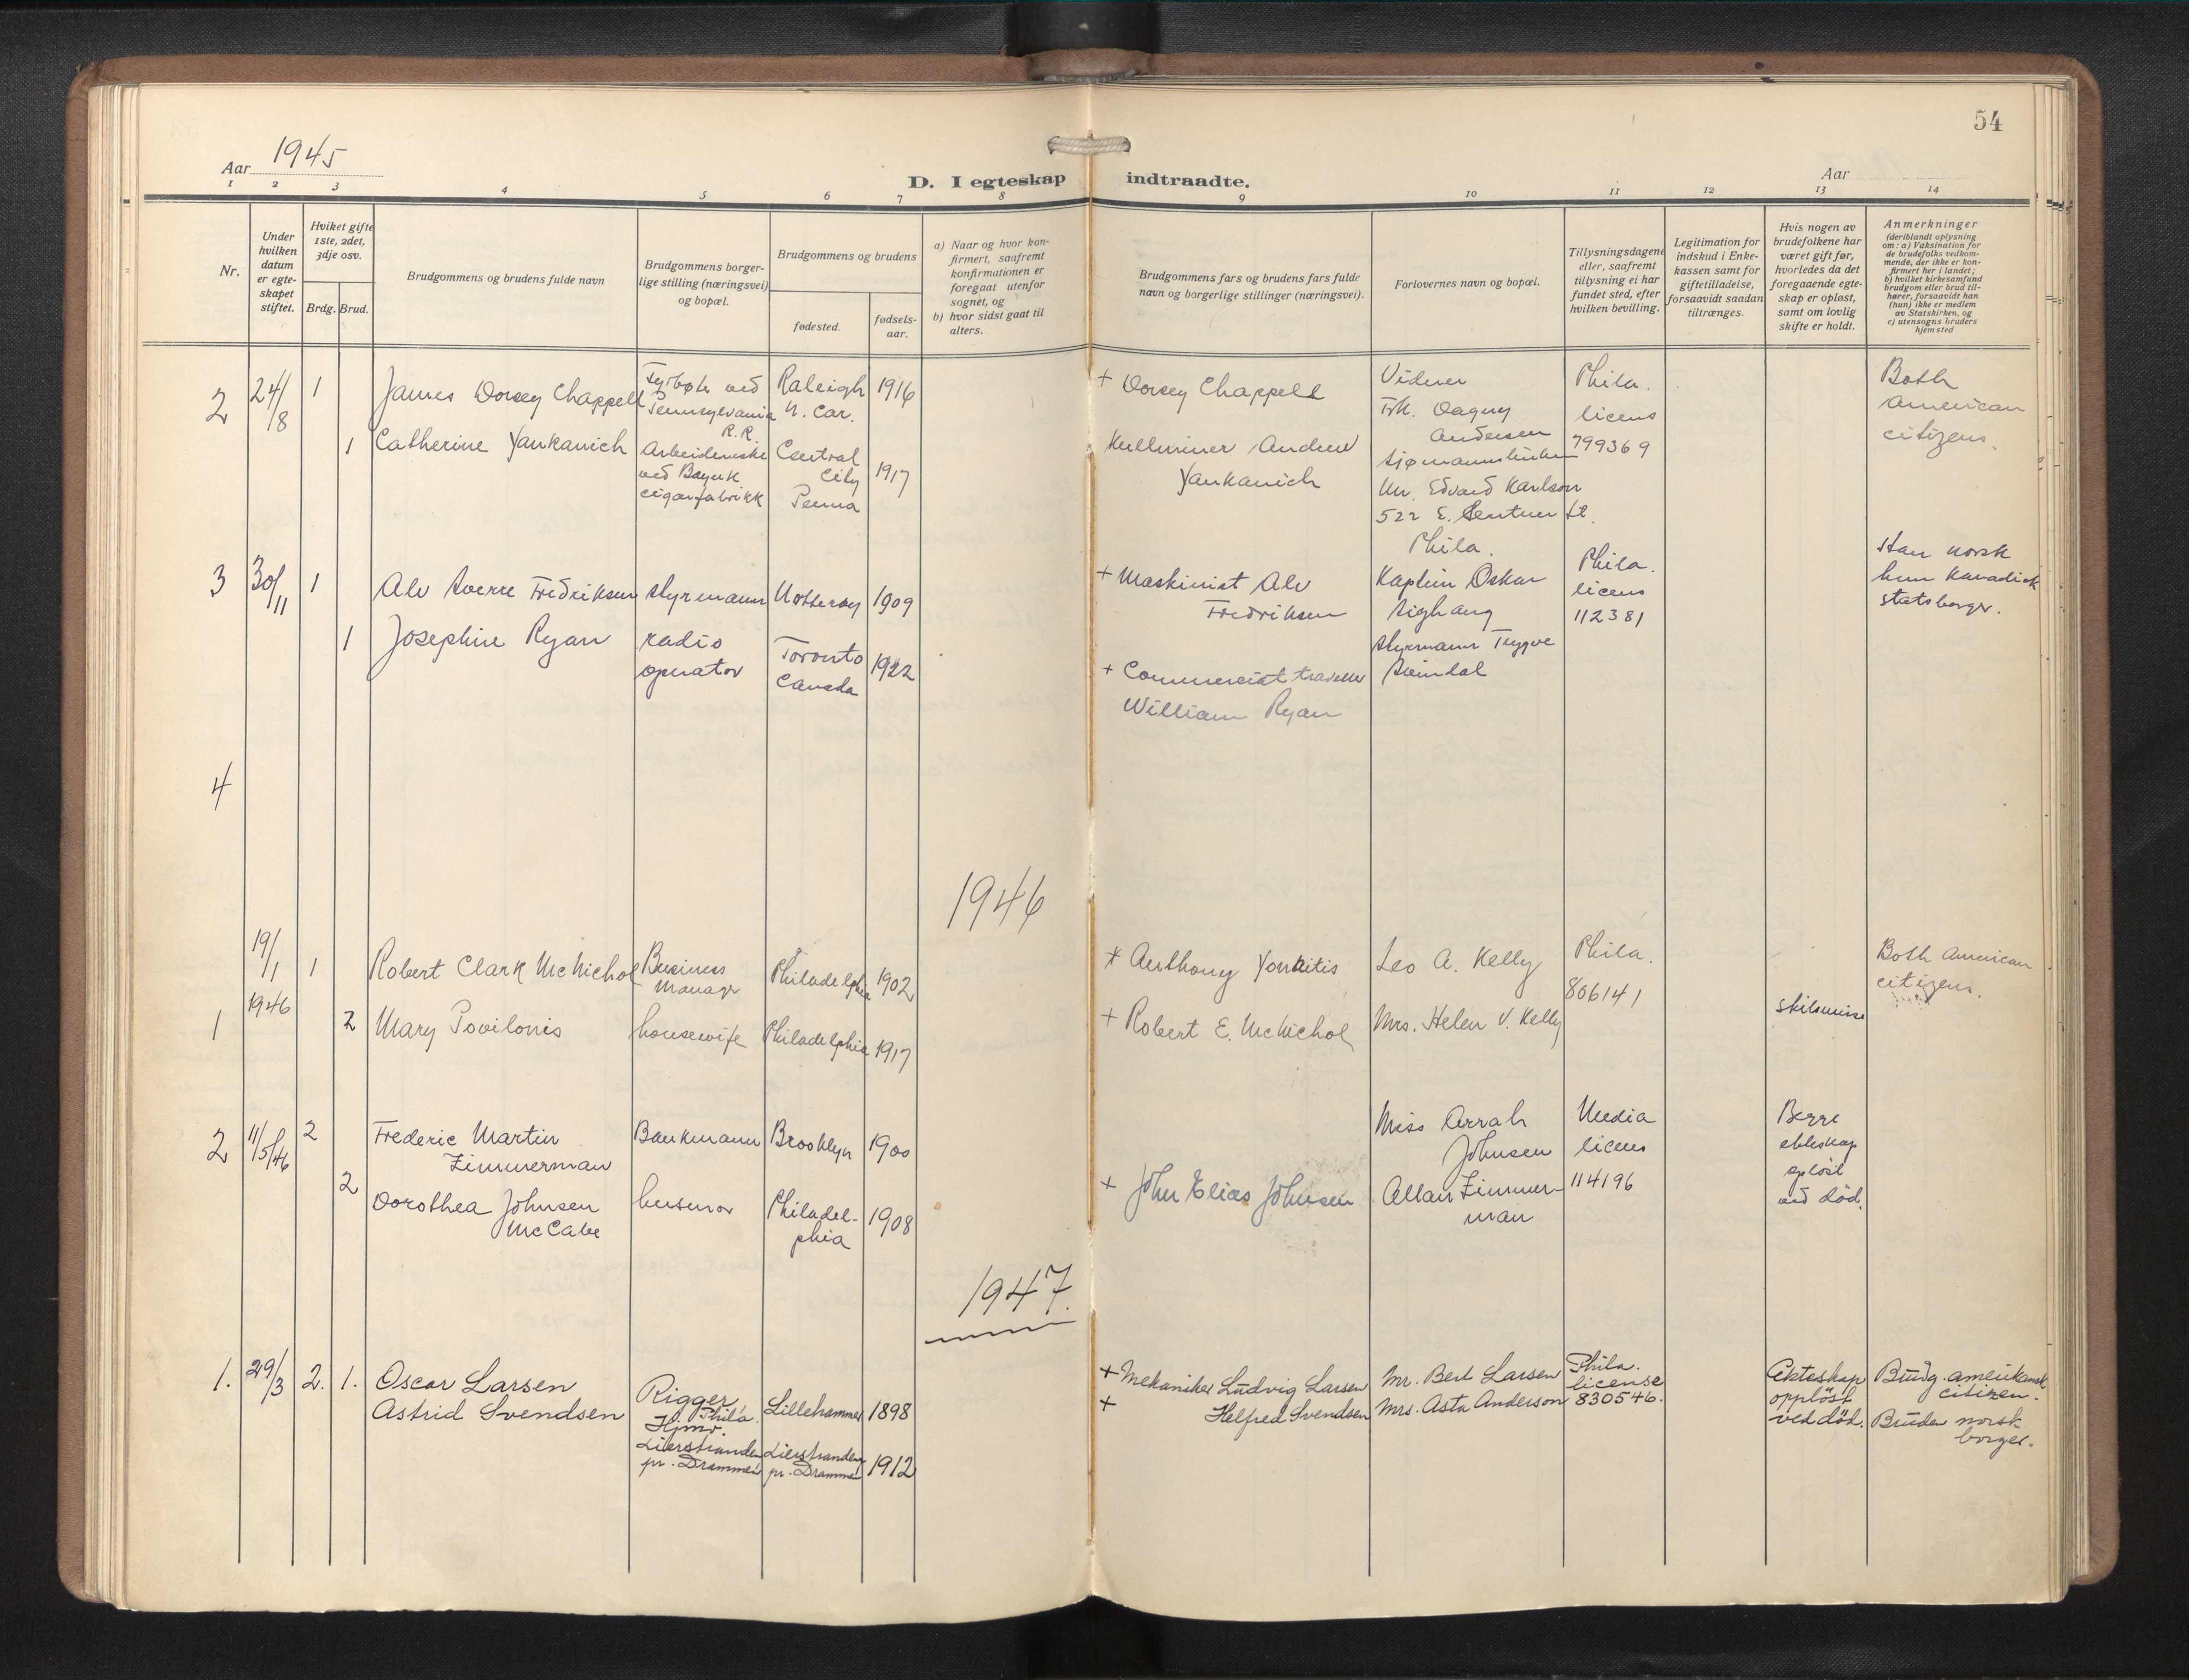 54
Aar 1945
D. I egteskap indtraadte.
Aar
1 2 3 4 5 6 7 8 9 10 11 12 13 14
Nr.
Under
hvilken
datum
er egte-
skapet
stiftet.
Hviket gifte
1ste, 2det,
3dje osv.
Brdg. Brud.
Brudgommens og brudens fulde navn
Brudgommens borger-
lige stilling (næringsvei)
og bopæl.
Brudgommens og brudens
fødested.
fødsels-
aar.
a) Naar og hvor kon-
firmert, saafremt
konfirmationen er
foregaat utenfor
sognet, og
b) hvor sidst gaat til
alters.
Brudgommens fars og brudens fars fulde
navn og borgerlige stillinger (næringsvei).
Forlovernes navn og bopæl.
Tillysningsdagene
eller, saafremt
tillysning ei har
fundet sted, efter
hvilken bevilling.
Legitimation for
indskud i Enke-
kassen samt for
giftetilladelse,
forsaavidt saadan
tiltrænges.
Hvis nogen av
brudefolkene har
været gift før,
hvorledes da det
foregaaende egte-
skap er opløst,
samt om lovlig
skifte er holdt.
Anmerkninger
(deriblandt oplysning
om: a) Vaksination for
de brudefolks vedkom-
mende, der ikke er kon-
firmert her i landet;
b) hvilket kirkesamfund
brudgom eller brud til-
hører, forsaavidt han
(hun) ikke er medlem
av Statskirken, og
c) utensogns bruders
hjemsted
2 24/8 1 James Dorsey Chappell
ved
Pennsylvania
R.R.
Raleigh
N. Car.
1916
+ Dorsey Chappell
Frk. Dagny
Andersen
Phila.
licens
799369
Both
American
citizens.
1 Catherine Yankanich
ved Bayuk
cigarfabrikk
Central
City
Penna
1917
Andrew
Yankanich
Mr. Edvard Karlson
522 E. St.
Phila.
3 30/11 1 Alv Sverre Fredriksen
styrmann
Nøtterøy
1909
+ Maskinist Alv
Fredriksen
Kaptein Oskar
Phila.
licens
112381
Han norsk
hun kanadisk
statsborger.
1 Josephine Ryan
radio
operator
Toronto
Canada
1922
+ Commercial traveller
William Ryan
styrmann Trygve
4
1946
19/1
1946
1
1 Robert Clark McNichol
Business
Manager
Philadelphia
1902
+ Anthony
Leo A. Kelly
Phila.
806141
Both American
citizens.
2 Mary Povilonis
housewife
Philadelphia
1917
+ Robert E. McNichol
Mrs. Helen V. Kelly
skilsmisse
2 11/5/46 2 Frederic Martin
Zimmerman
Bankmann
Brooklyn
1900
Miss Arrah
Johnsen
Media
licens
114196
Begge
ekteskap
opløst
ved död.
2 Dorothea Johnsen
McCabe
husmor
Philadel-
phia
1908
+ John Elias Johnsen
Allan Zimmer-
man
1947.
1. 29/3 2. 1. Oscar Larsen
Astrid Svendsen
Rigger
Phila.
Hjmv.
Lierstranden
pr. Drammen
Lillehammer
1898
Lierstranden
pr. Drammen
1912
+ Mekaniker Ludvig Larsen
+ Helfred Svendsen
Mr. Bert Larsen
Mrs. Asta Anderson
Phila.
license
830546.
Ekteskap
oppløst
ved död.
Brudg. amerikansk
citizen.
Bruden norsk
borger.